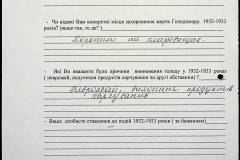 - Чи відомі Вам конкретні місця захоронення жертв Голодомору 1932-1933
років? (якщо так, то де? )
Хоронили на кладовищі.
- Які Ви вважаєте були причини виникнення голоду у 1932-1933 роках
( неврожай, вилучення продуктів харчування чи другі обставини) ?
Неврожай, вилучення продуктів
харчування
- Ваше особисте ставлення до подій 1932-1933 років ( за бажанням)